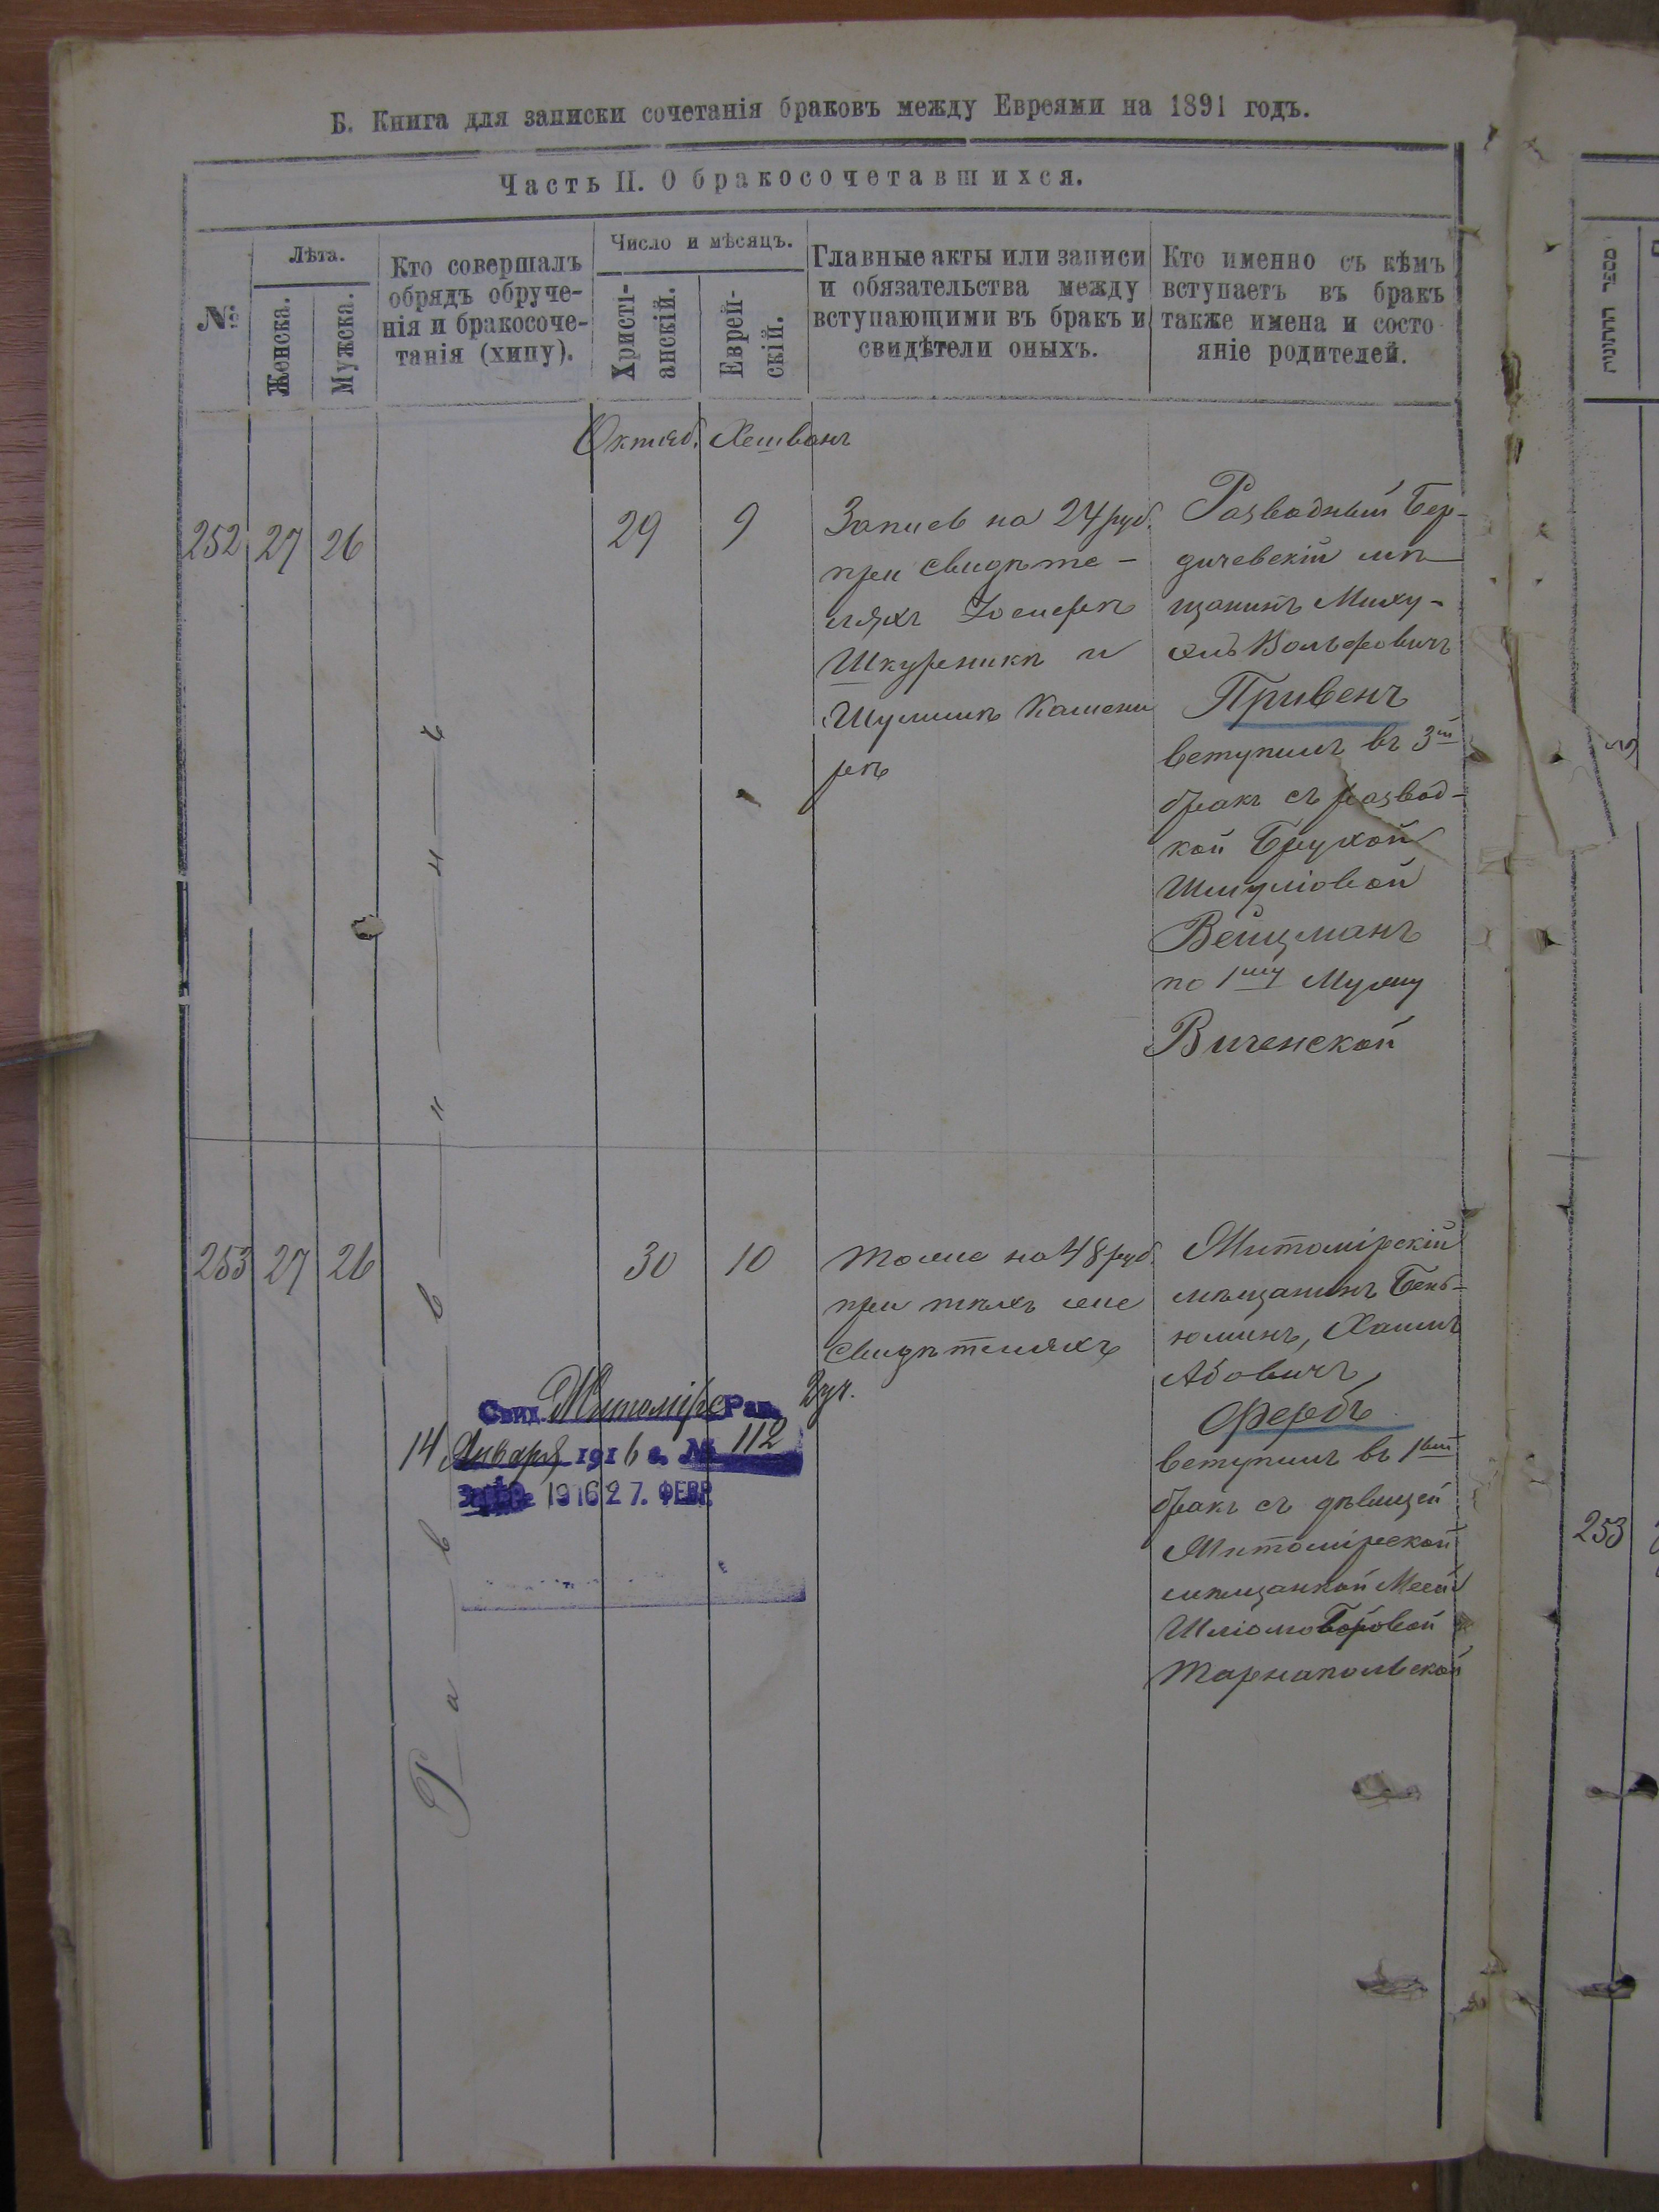 Б. Книга для записки сочетанія браковъ между Евреями на 1891 годъ.
Часть II. О бракосочетавшихся.
№
Лѣта.
Женска.
Мужска.
Кто совершалъ
обрядъ обруче-
нія и бракосоче-
танія (хипу).
Число и мѣсяцъ.
Христі-
анскій.
Еврей-
скій.
Главные акты или записи
и обязательства между
вступающими въ бракъ и
свидѣтели оныхъ.
Кто именно съ кѣмъ
вступаетъ въ бракъ
также имена и состо
яніе родителей.
Октяб. Хешванъ
252 27 26
29 9
Запись на 24 руб.
при свидѣте-
ляхъ Іосифѣ
Шкурникѣ и
Шулимѣ Камени
рѣ
Разводный Бер-
дичевскій мѣ
щанинъ Миху-
Вольфовичъ
Привенъ
вступилъ въ 3ій
бракъ съ развод-
кой Брухой
Шмуліовой
Вейцманъ
по 1му мужу
Виченской
253 27 26
30 10
тоже на 48 руб.
при тѣхъ же
свидѣтеляхъ
Житомірскій
мѣщанинъ Бень-
юминъ, Хаимъ
Абовичъ
Фербъ
вступилъ въ 1ый
бракъ съ дѣвицей
Житомірской
мѣщанкой
Тарнапольской
Свид. Житомірс Рав.
14 Января 1916 г. № 112
1916 27. ФЕВР.
Раввинъ
253